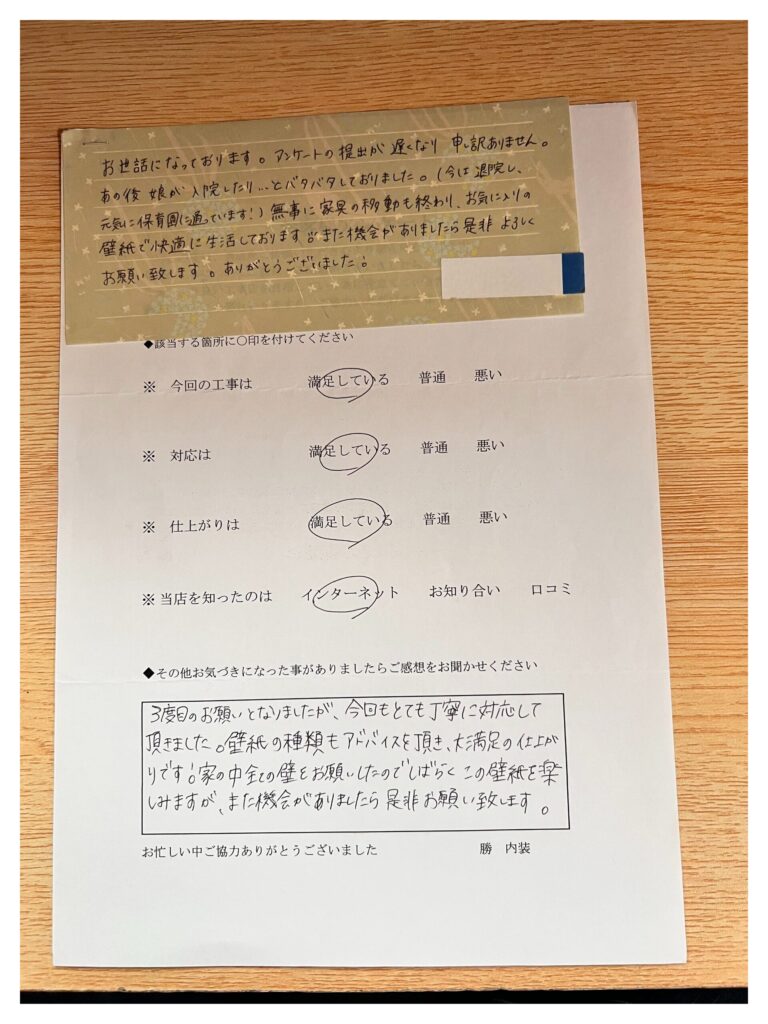 お世話になっております。アンケートの提出が遅くなり申し訳ありません。
あの後娘が入院したり…とバタバタしておりました。(今は退院し、
元気に保育園に通っています!)無事に家具の移動も終わり、お気に入りの
壁紙で快適に生活しております!!また機会がありましたら是非よろしく
お願い致します。ありがとうございました!
◆該当する箇所に〇印を付けてください
※ 今回の工事は 満足している 普通 悪い
※ 対応は 満足している 普通 悪い
※ 仕上がりは 満足している 普通 悪い
※ 当店を知ったのは インターネット お知り合い 口コミ
◆その他お気づきになった事がありましたらご感想をお聞かせください
3度目のお願いとなりましたが、今回もとても丁寧に対応して
頂きました。壁紙の種類もアドバイスを頂き、大満足の仕上が
りです!家の中全ての壁をお願いしたのでしばらくこの壁紙を楽
しみますが、また機会がありましたら是非お願い致します。
お忙しい中ご協力ありがとうございました 勝 内装